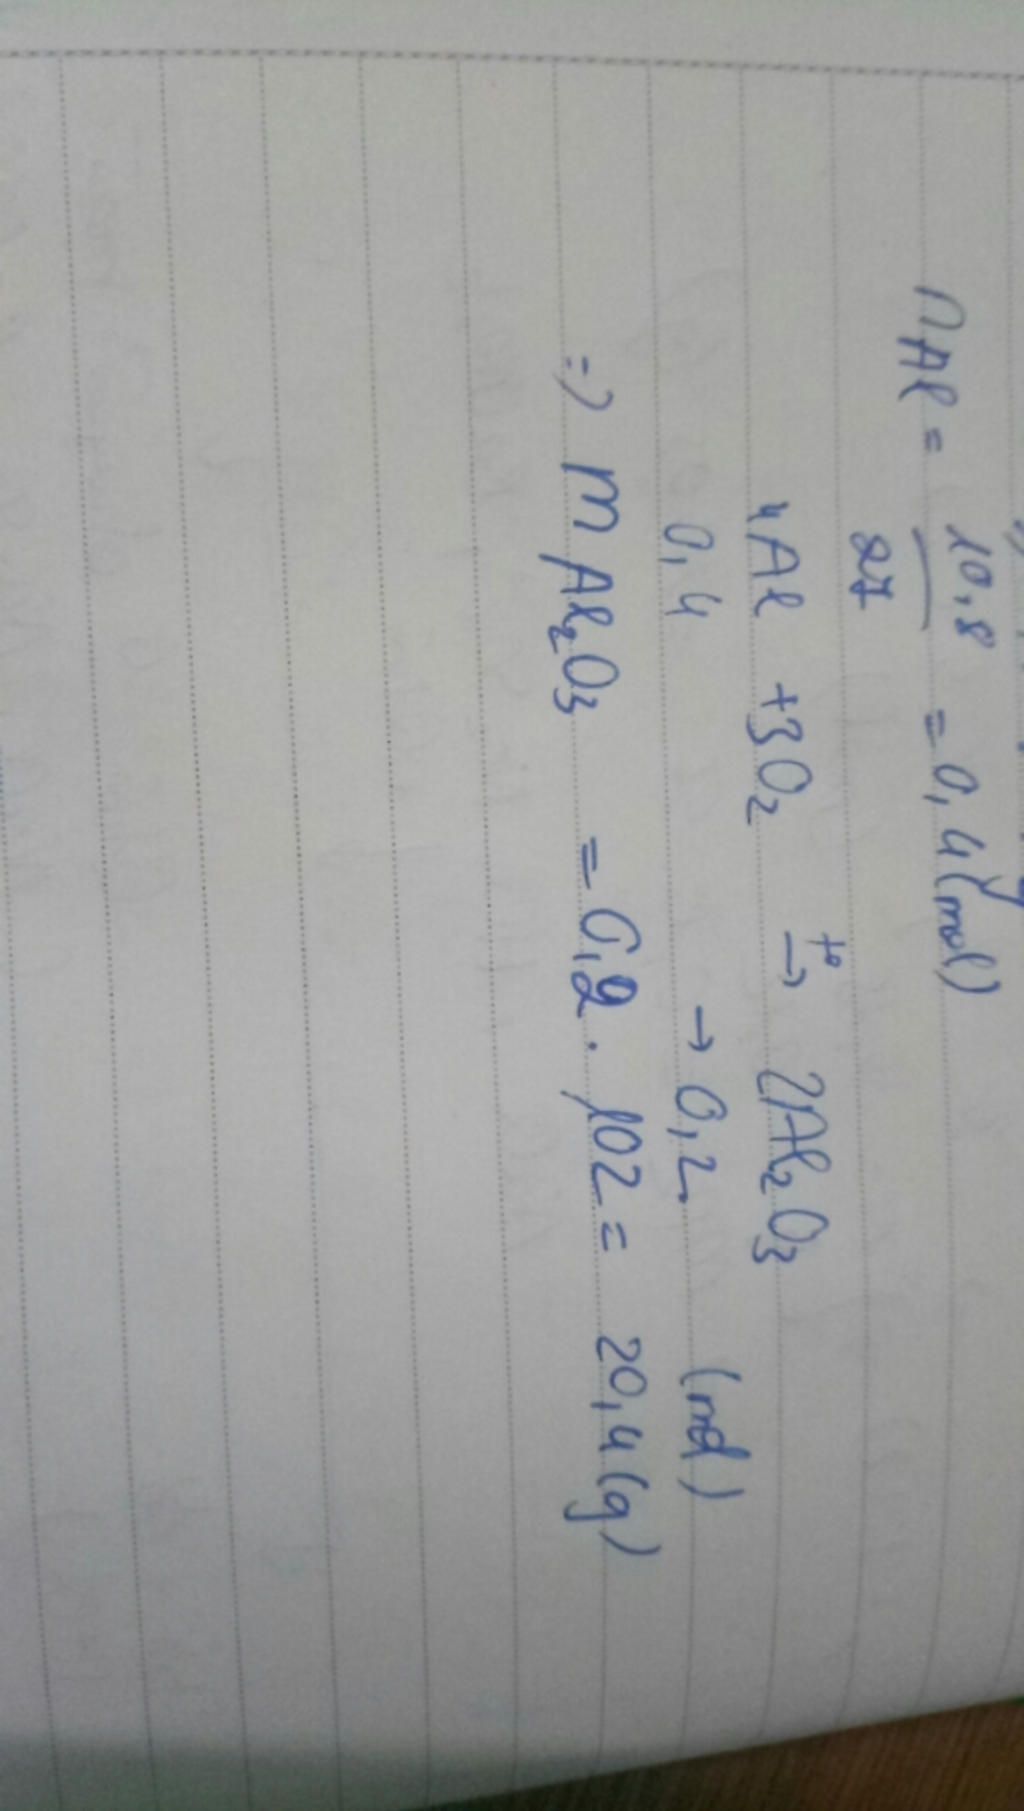 nAl = 10,8 / 27 = 0,4 (mol)
4Al + 3O₂ t° → 2Al₂O₃
0,4 → 0,2 (mol)
=> mAl₂O₃ = 0,2 . 102 = 20,4 (g)